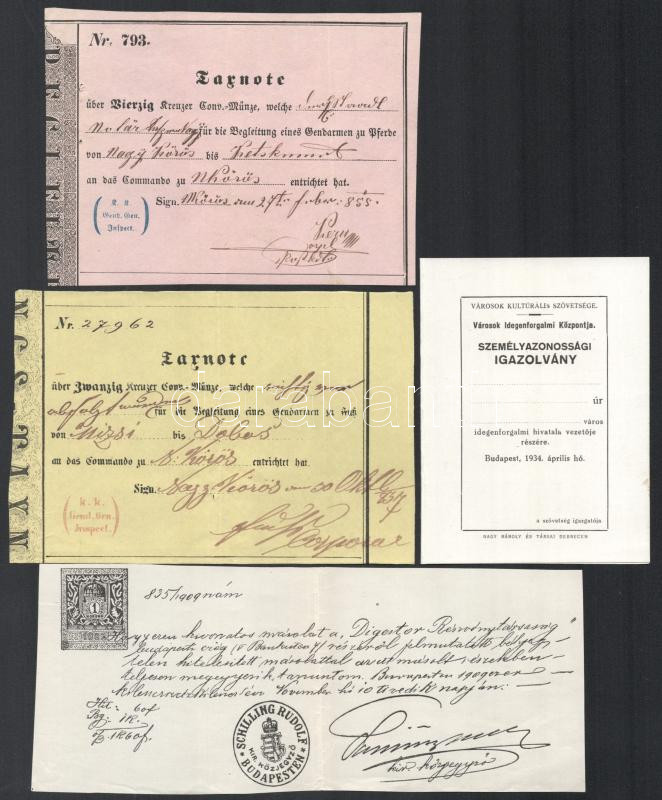 Nr. 793.
Taxnote
über Vierzig Kreuzer Conv.-Münze, welche
Notär für die Begleitung eines Gendarmen zu Pferde
von Nagy Körös bis Ketskemet
an das Commando zu NKörös entrichtet hat.
Sign. NKörös am 27ten 855.
K. K.
Gend. Gen.
Inspect.
Nr. 27962
Taxnote
über Zwanzig Kreuzer Conv.-Münze, welche
für die Begleitung eines Gendarmen zu Fuß
von Mizsi bis Dabas
an das Commando zu N. Körös entrichtet hat.
Sign. Nagy Körös am 30
k. k.
Gend. Gen.
Inspect.
Corporal
VÁROSOK KULTURÁLIS SZÖVETSÉGE.
Városok Idegenforgalmi Központja.
SZEMÉLYAZONOSSÁGI
IGAZOLVÁNY
úr
város
idegenforgalmi hivatala vezetője
részére.
Budapest, 1934. április hó.
a szövetség igazgatója
NAGY KÁROLY ÉS TÁRSAI DEBRECEN
darabanth
1
835/1909 nám
"Digestor Részvénytársaság"
Budapesti részéről felmutatott bélyeg-
telen hitelesített másolattal
teljesen megegyezik, tanusítom. Budapesten
November hó 10 tizedik napján.
60f
1K.
1K60f.
SCHILLING RUDOLF
KIR. KÖZJEGYZŐ
BUDAPESTEN
kir. közjegyző